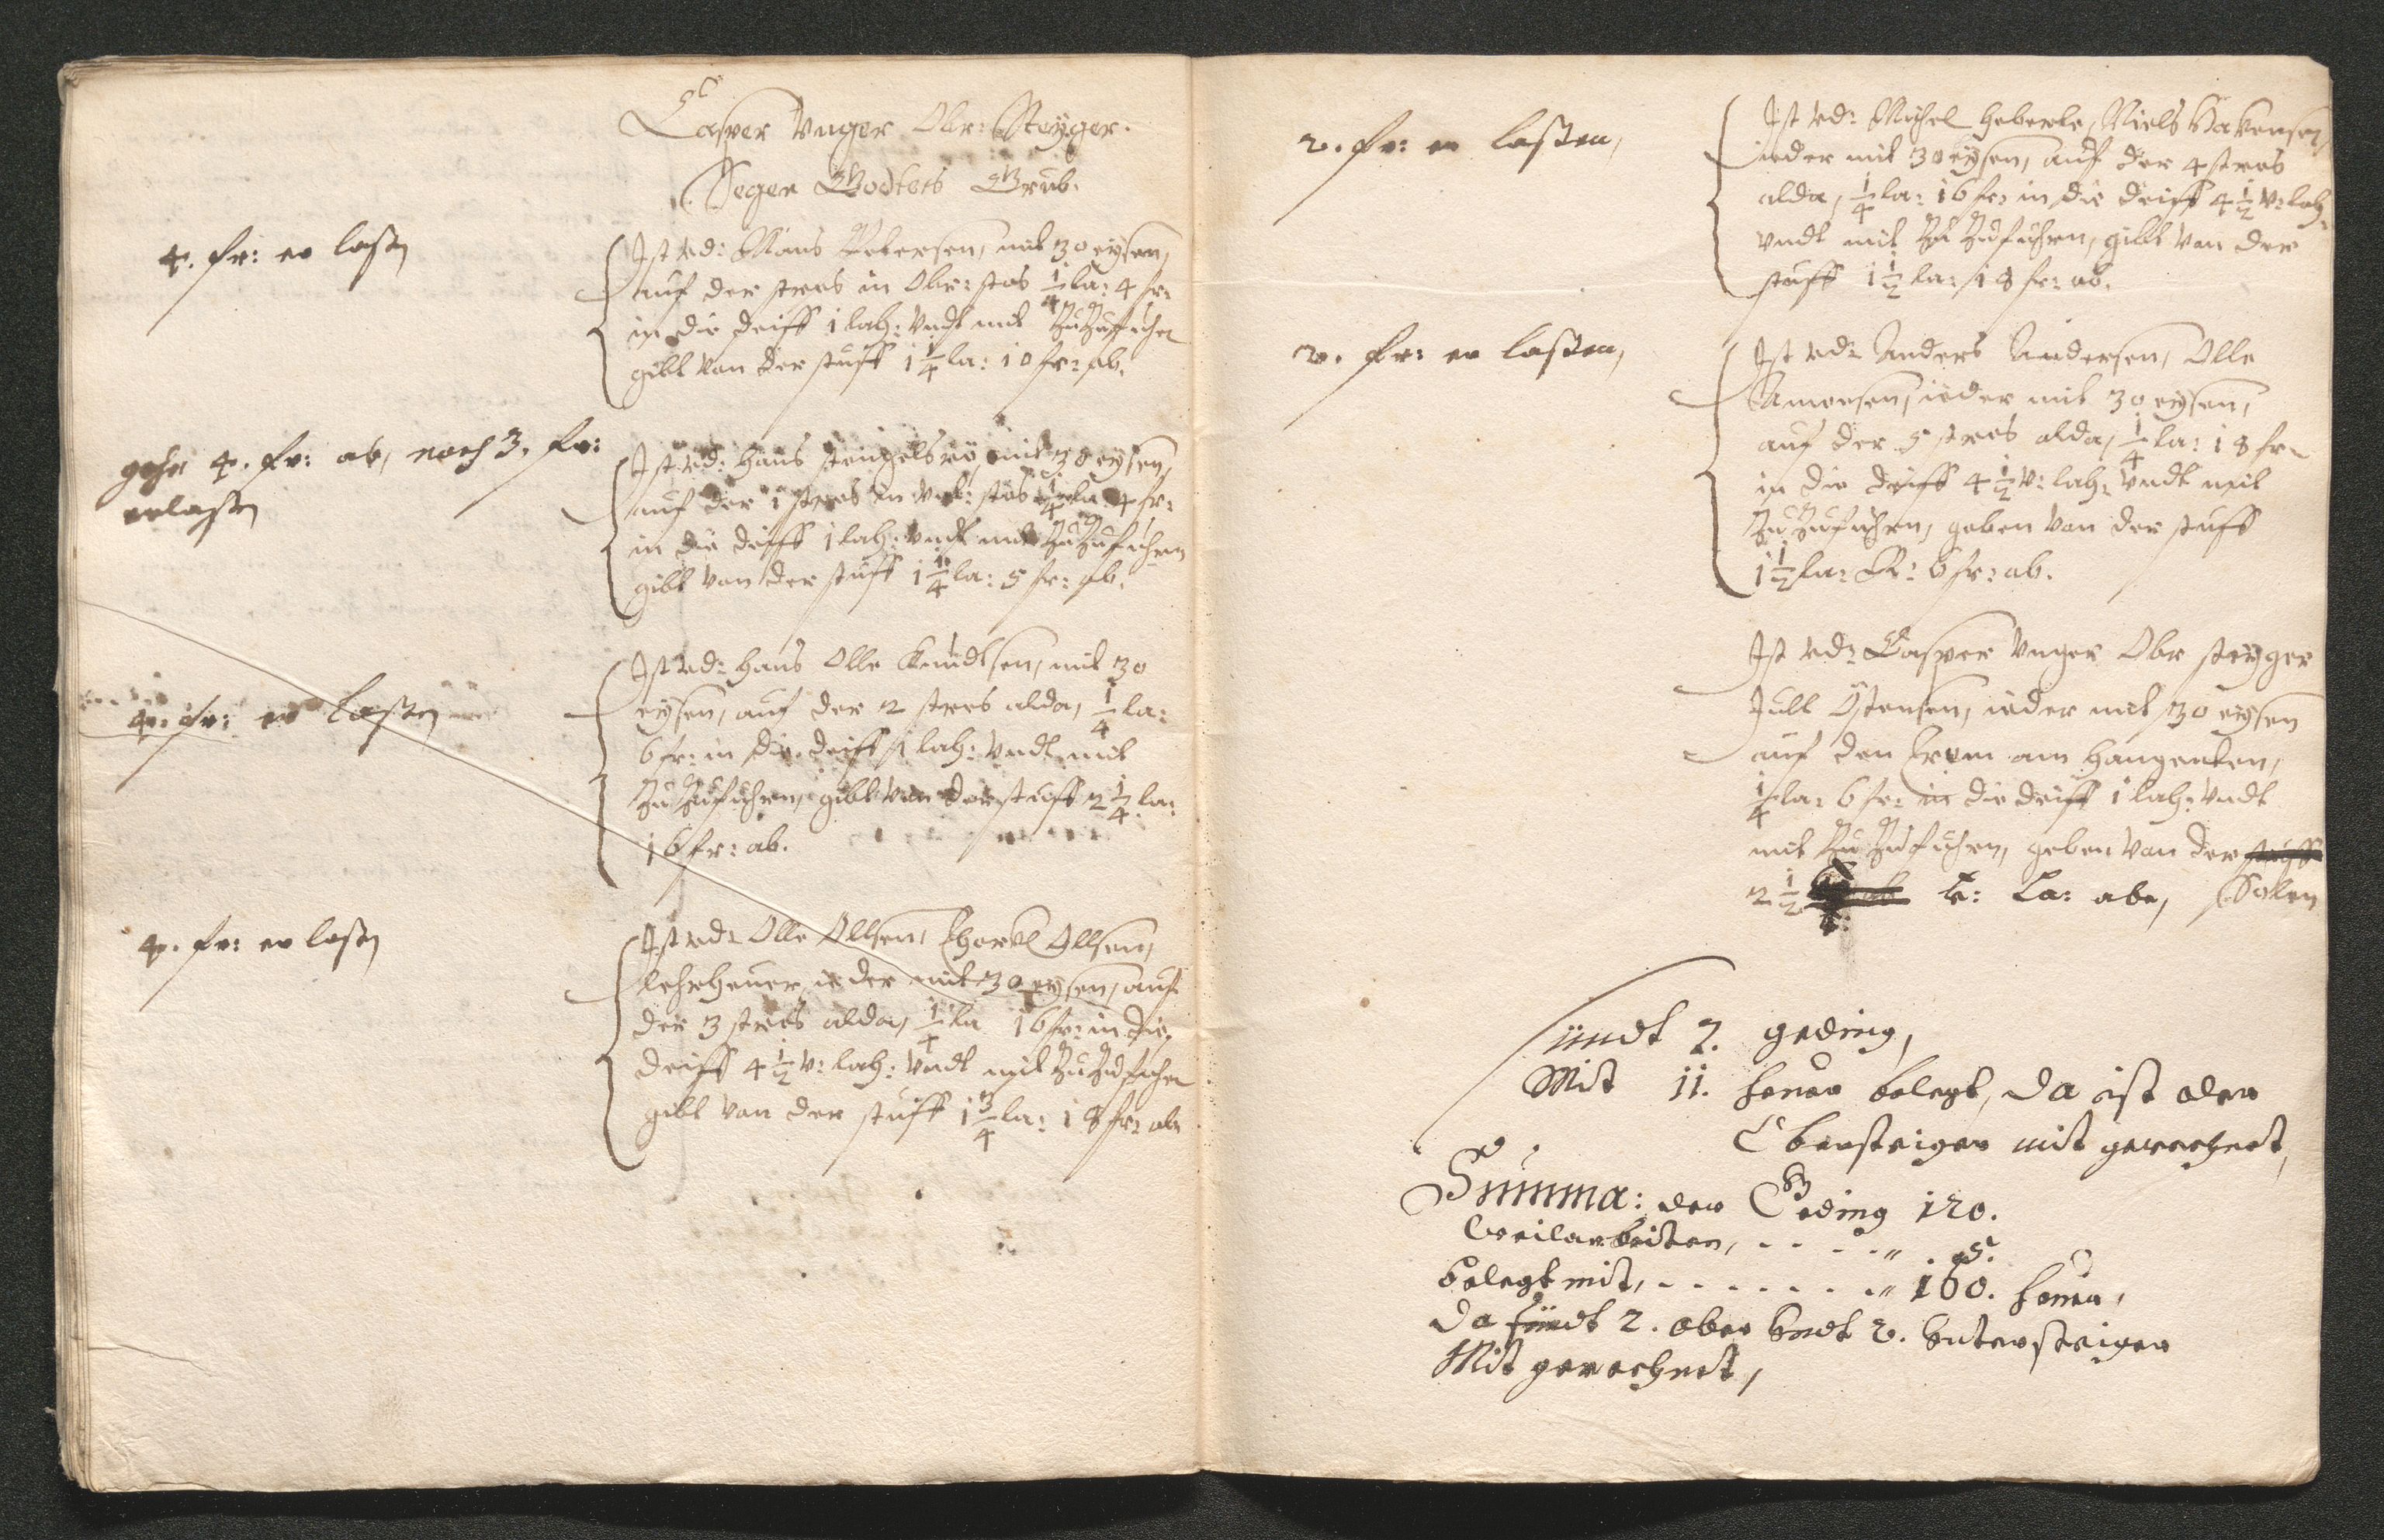 Casper Unger Obr: Steyger.
Segen Godtes Grub.
4. fr: er lasen
Ist ved: Mans Petersen, mit 30 eysen,
auf der stros in Obr: stos 1/4 la: 4 fr:
in die deiff 1 lah: vndt mit Zu Zufuhen
gibt von der stuff 1 1/4 la: 10 fr: ab.
gehn 4. fr: ab, noch 3. fr:
erlasen
Ist ved: Hans mit 30 eysen,
auf der 1 stros in vnt: stos 1/4 la: 4 fr:
in die deiff 1 lah: vndt mit Zu Zufuhren
gibt von der stuff 1 1/4 la: 5 fr: ab.
4. fr: er lasen
Ist ved: Hans Olle Knudtsen, mit 30
eysen, auf der 2 stros alda, 1/4 la:
6 fr: in die deiff 1 lah: vndt mit
Zu Zufuhren, gibt von der stuff 2 1/4 la:
16 fr: ab.
4. fr: er lasen
Ist ved: Olle Ollsen, Thorkel Ollsen,
lehrheuer, ieder mit 30 eysen, auf
der 3 stros alda, 1/4 la 16 fr: in die
deiff 4 1/2 v: lah: vndt mit Zu Zufuhen
gibt von der stuff 1 3/4 la: 18 fr: ab
2. fr: er lasen,
Ist ved: Michel Heberle, Niels Hakensen,
ieder mit 30 eysen, auf der 4 stros
alda, 1/4 la: 16 fr: in die deiff 4 1/2 v: lah:
vndt mit Zu Zufuhren, gibt von der
stuff 1 1/2 la: 18 fr: ab.
2. fr: er lasen,
Ist ved: Anders Andersen, Olle
Amorsen, ieder mit 30 eysen,
auf der 5 stros alda, 1/4 la: 18 fr:
in die deiff 4 1/2 v: lah: vndt mit
Zu Zufuhren, geben von der stuff
1 1/2 la: R: 6 fr: ab.
Ist ved: Casper Unger Obr steyger
Jull Östensen, ieder mit 30 eysen
auf den trom am hangenten,
1/4 la: 6 fr: in die deiff 1 lah: vndt
mit Zu Zufuhren, geben von der stuff
2 1/2 k: La: abe, Solen
sündt 7. geding,
Mit 11. heuer belegt, da ist der
Obersteiger mit gerechent,
Summa: der Geding 120.
Weilarbeiten, - - - - " . 5.
belegt mit, - - - - - - - " 160. heuer,
da sündt 2. ober vndt 2. vntersteiger
Mit gerechent,